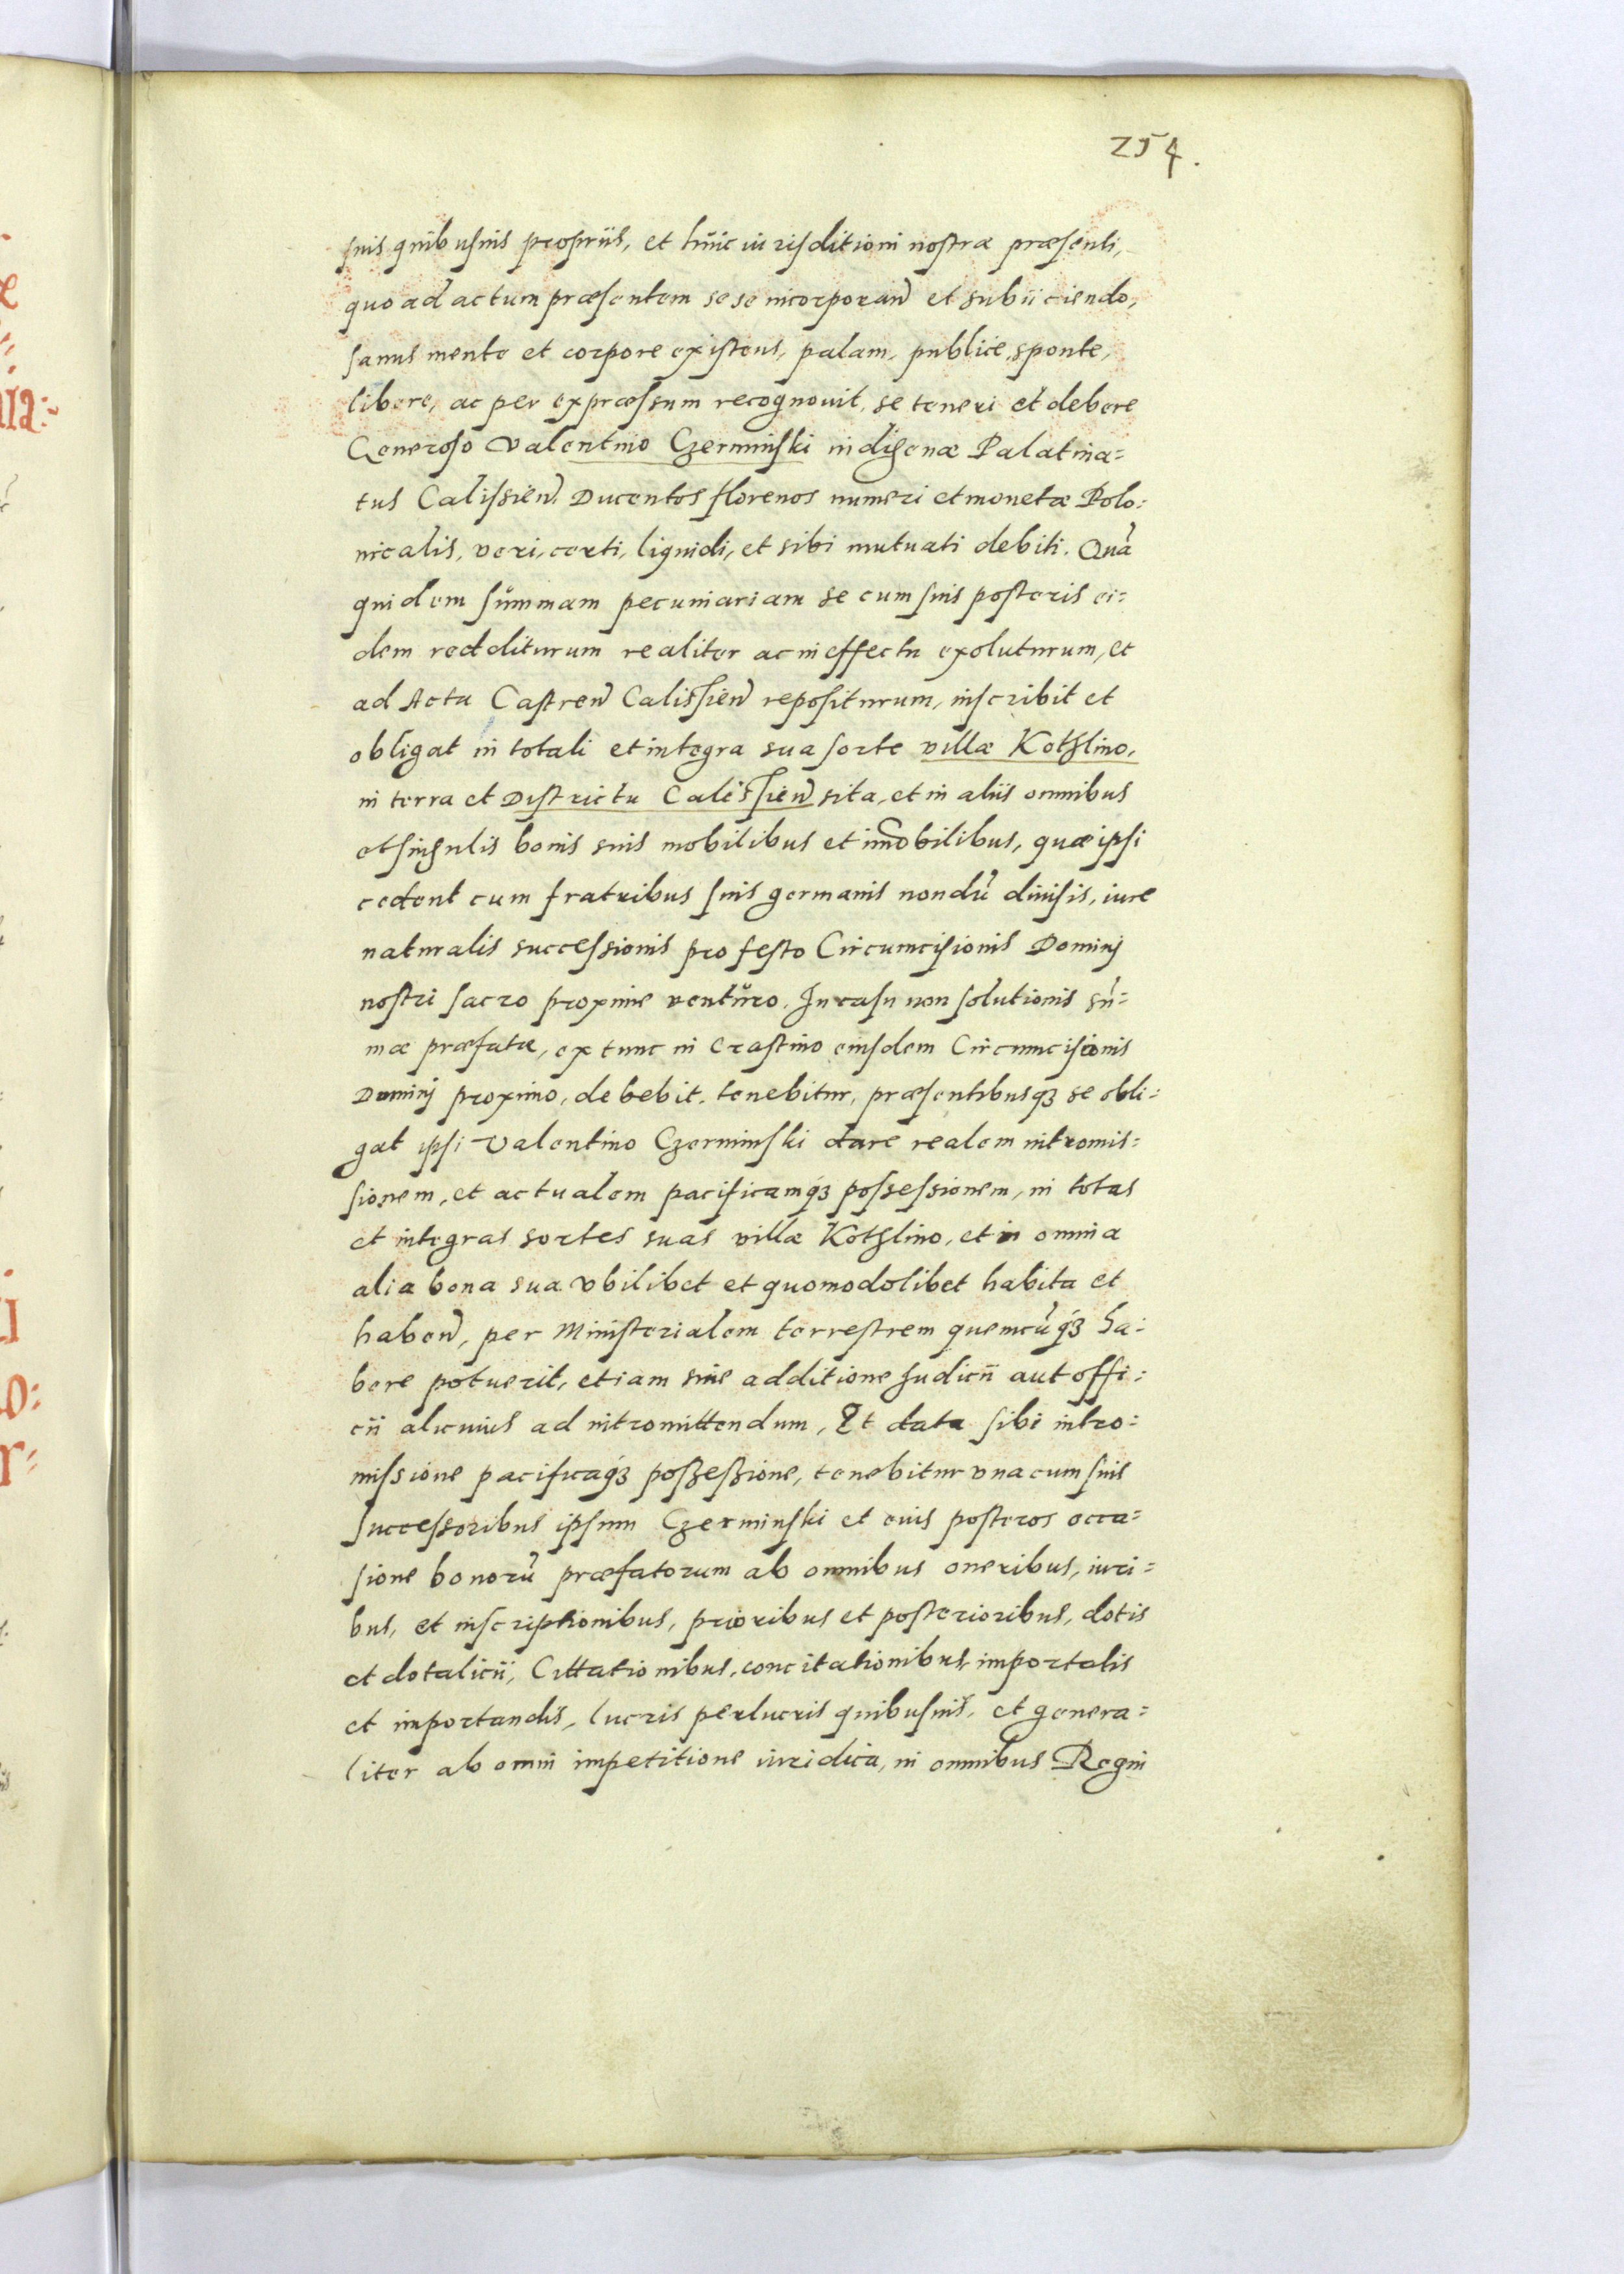 254.
suis quibusuis proprijs, et huic iurisditioni nostræ præsenti,
quo ad actum præsentem sese incorporan̄ et subijciendo,
sanus mente et corpore existens, palam, publice, sponte,
libere, ac per expræssum recognouit, se teneri et debere
Generoso Valentino Czerminski indigenæ Palatina=
tus Calissien̄. Ducentos florenos numeri et monetæ Polo:
nicalis, veri, certi, liquidi, et sibi mutuati debiti. Quā
quidem summam pecuniariam se cum suis posteris ei=
dem redditurum realiter ac in effectu exoluturum, et
ad Acta Castren̄ Calissien̄ repositurum, inscribit et
obligat in totali et integra sua sorte villæ Kothlino,
in terra et Districtu Calissien̄ sita, et in alijs omnibus
et singulis bonis suis mobilibus et immobilibus, quæ ipsi
cedent cum fratribus suis germanis nondū diuisis, iure
naturalis successionis pro festo Circumcisionis Dominj
nostri sacro proxime venturo. In casu non solutionis sū=
mæ præfatæ, ex tunc in crastino eiusdem Circumcisionis
Dominj proximo, debebit, tenebitur, præsentibusq3 se obli:
gat ipsi Valentino Czerminski dare realem intromis=
sionem, et actualem pacificamq3 possessionem, in totas
et integras sortes suas villæ Kothlino, et in omnia
alia bona sua vbilibet et quomodolibet habita et
haben̄, per Ministerialem terrestrem quemcūq3 ha:
bere potuerit, etiam sine additione Iudicii aut offi:
cii alicuius ad intromittendum, Et data sibi intro:
missione pacificaq3 possessione, tenebitur vna cum suis
successoribus ipsum Czerminski et euis posteros occa=
sione bonorū præfatorum ab omnibus oneribus, iuri=
bus, et inscriptionibus, prioribus et posterioribus, dotis
et dotalicii, Cittationibus, concitationibus, importatis
et importandis, lucris perlucris quibusuis, et genera=
liter ab omni impetitione iuridica, in omnibus Regni